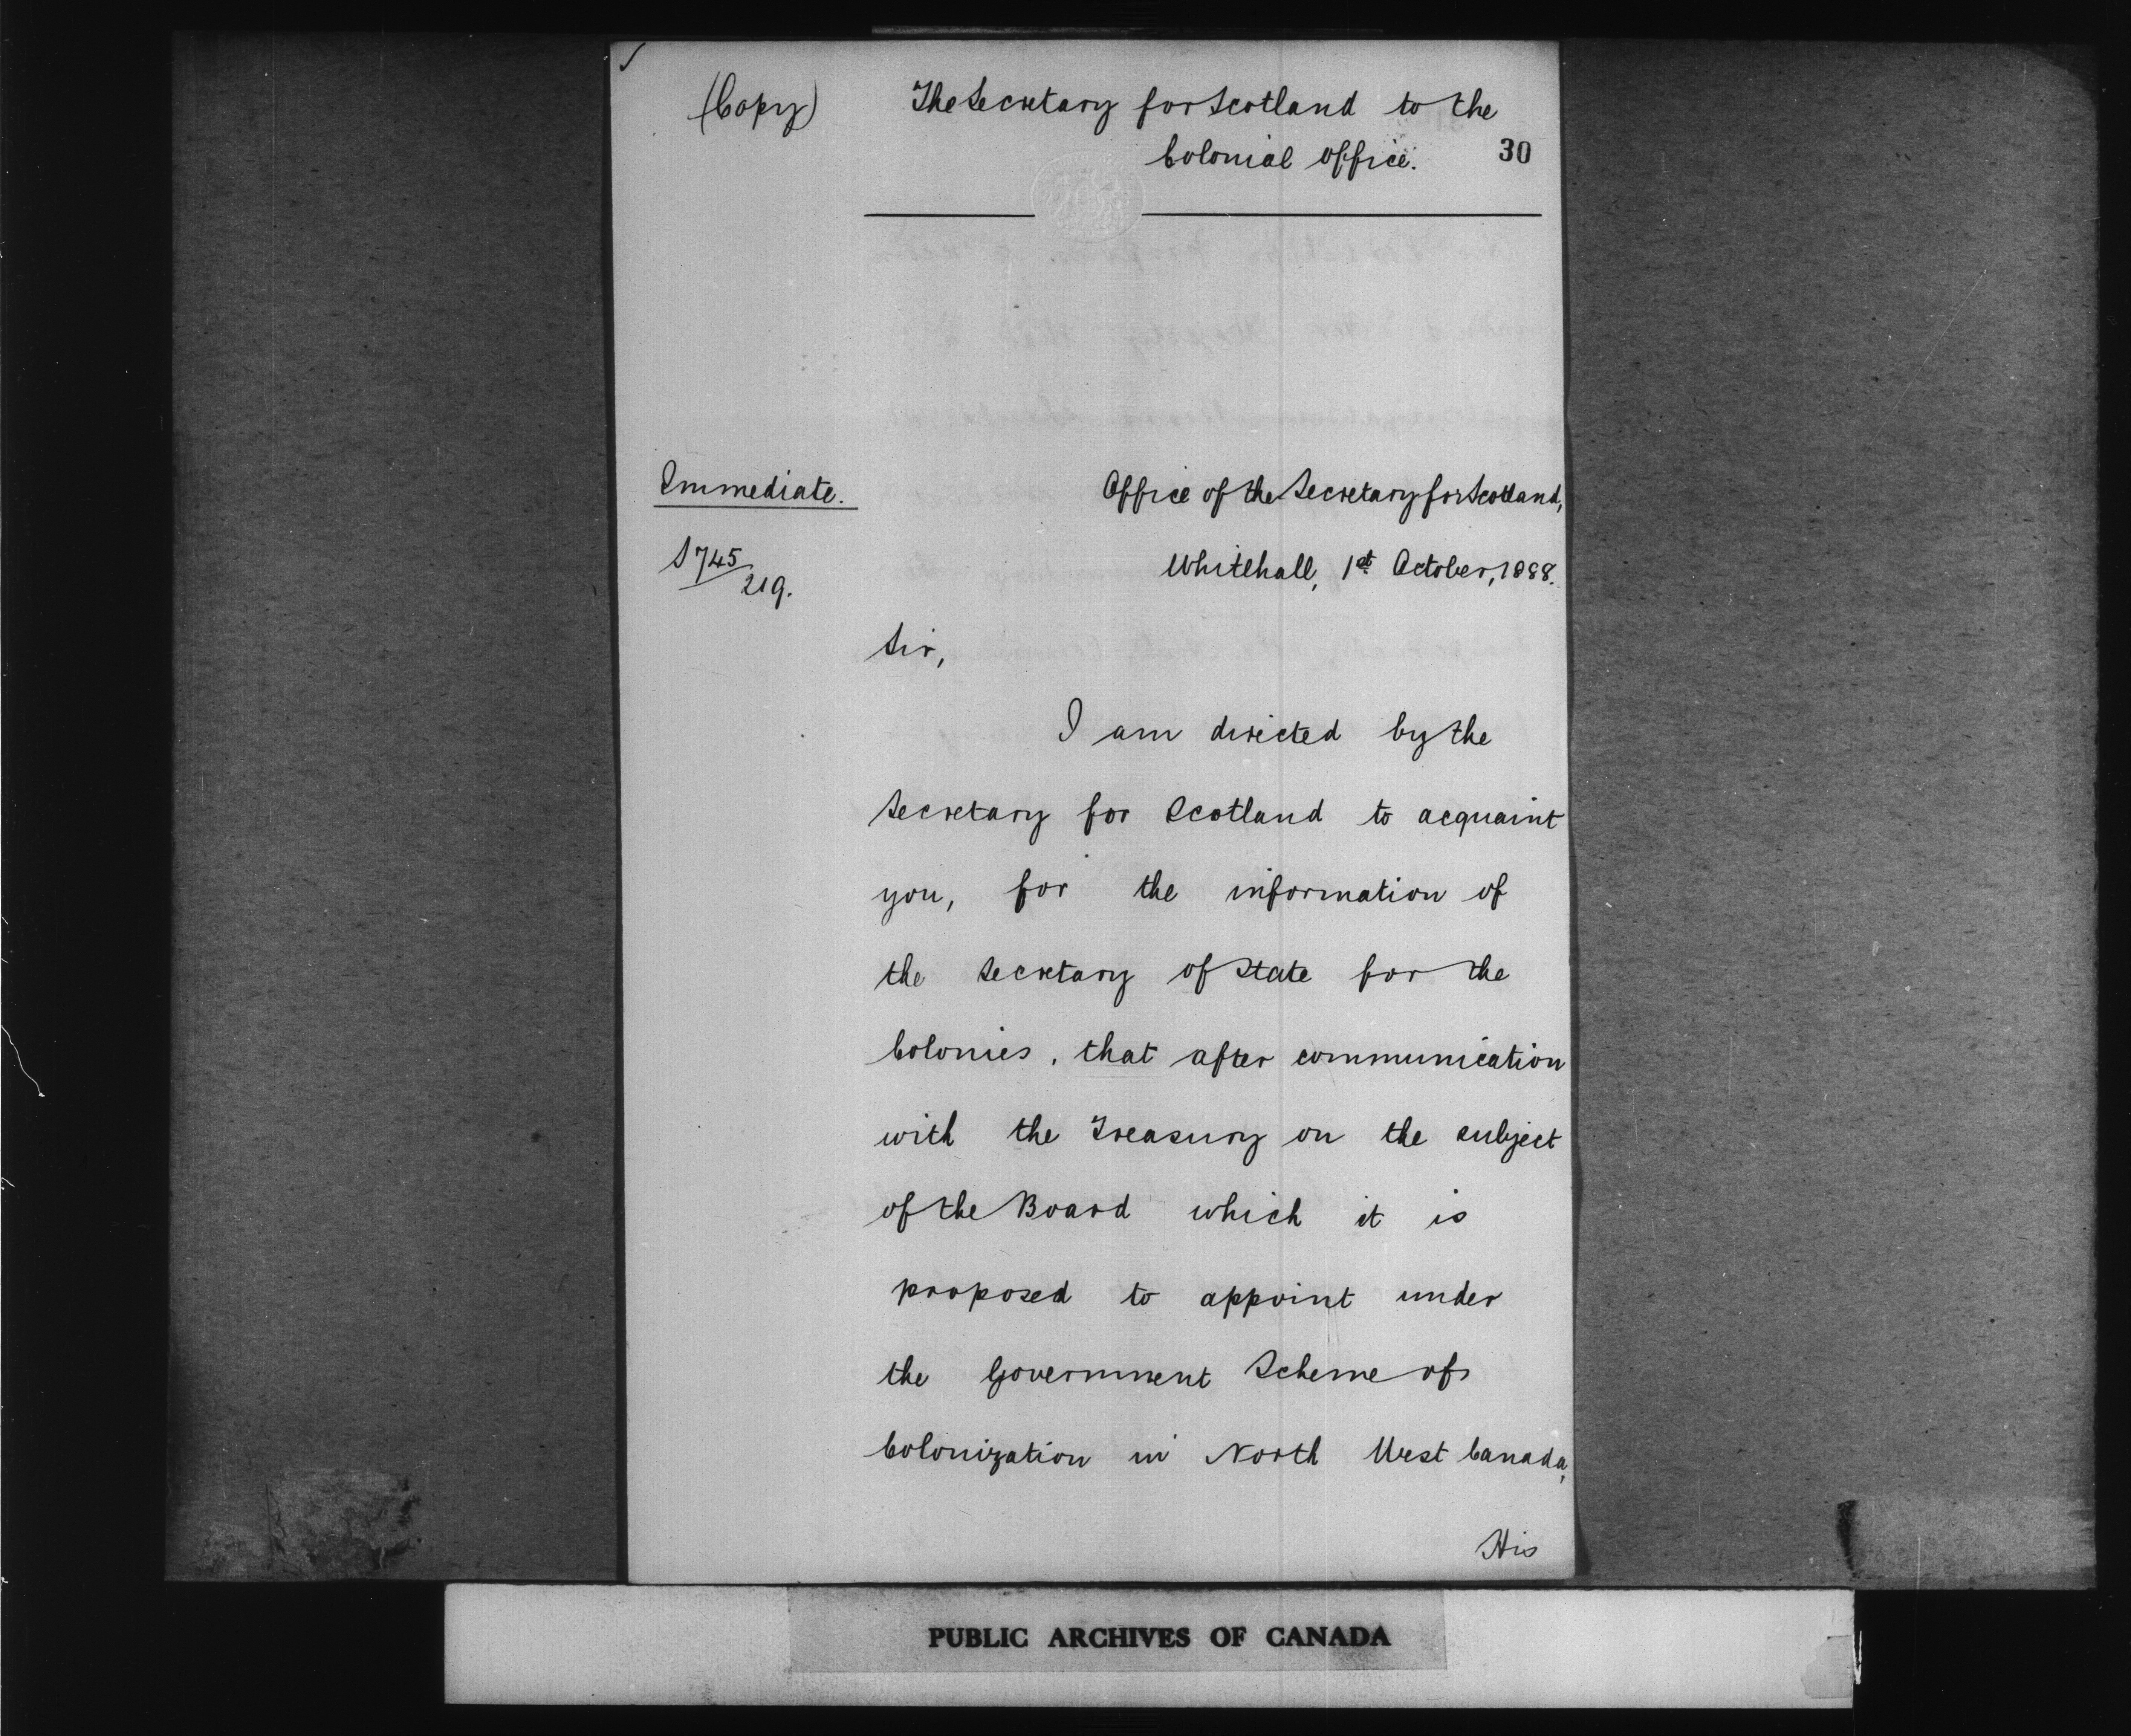 (Copy)
The Secretary for Scotland to the
Colonial Office.
30
Immediate.
Office of the Secretary for Scotland,
S 745/219.
Whitehall, 1st October, 1888.
Sir,
I am directed by the
Secretary for Scotland to acquaint
you, for the information of
the Secretary of State for the
Colonies, that after communication
with the Treasury on the subject
of the Board which it is
proposed to appoint under
the Government Scheme of
Colonization in North West Canada,
His
PUBLIC ARCHIVES OF CANADA